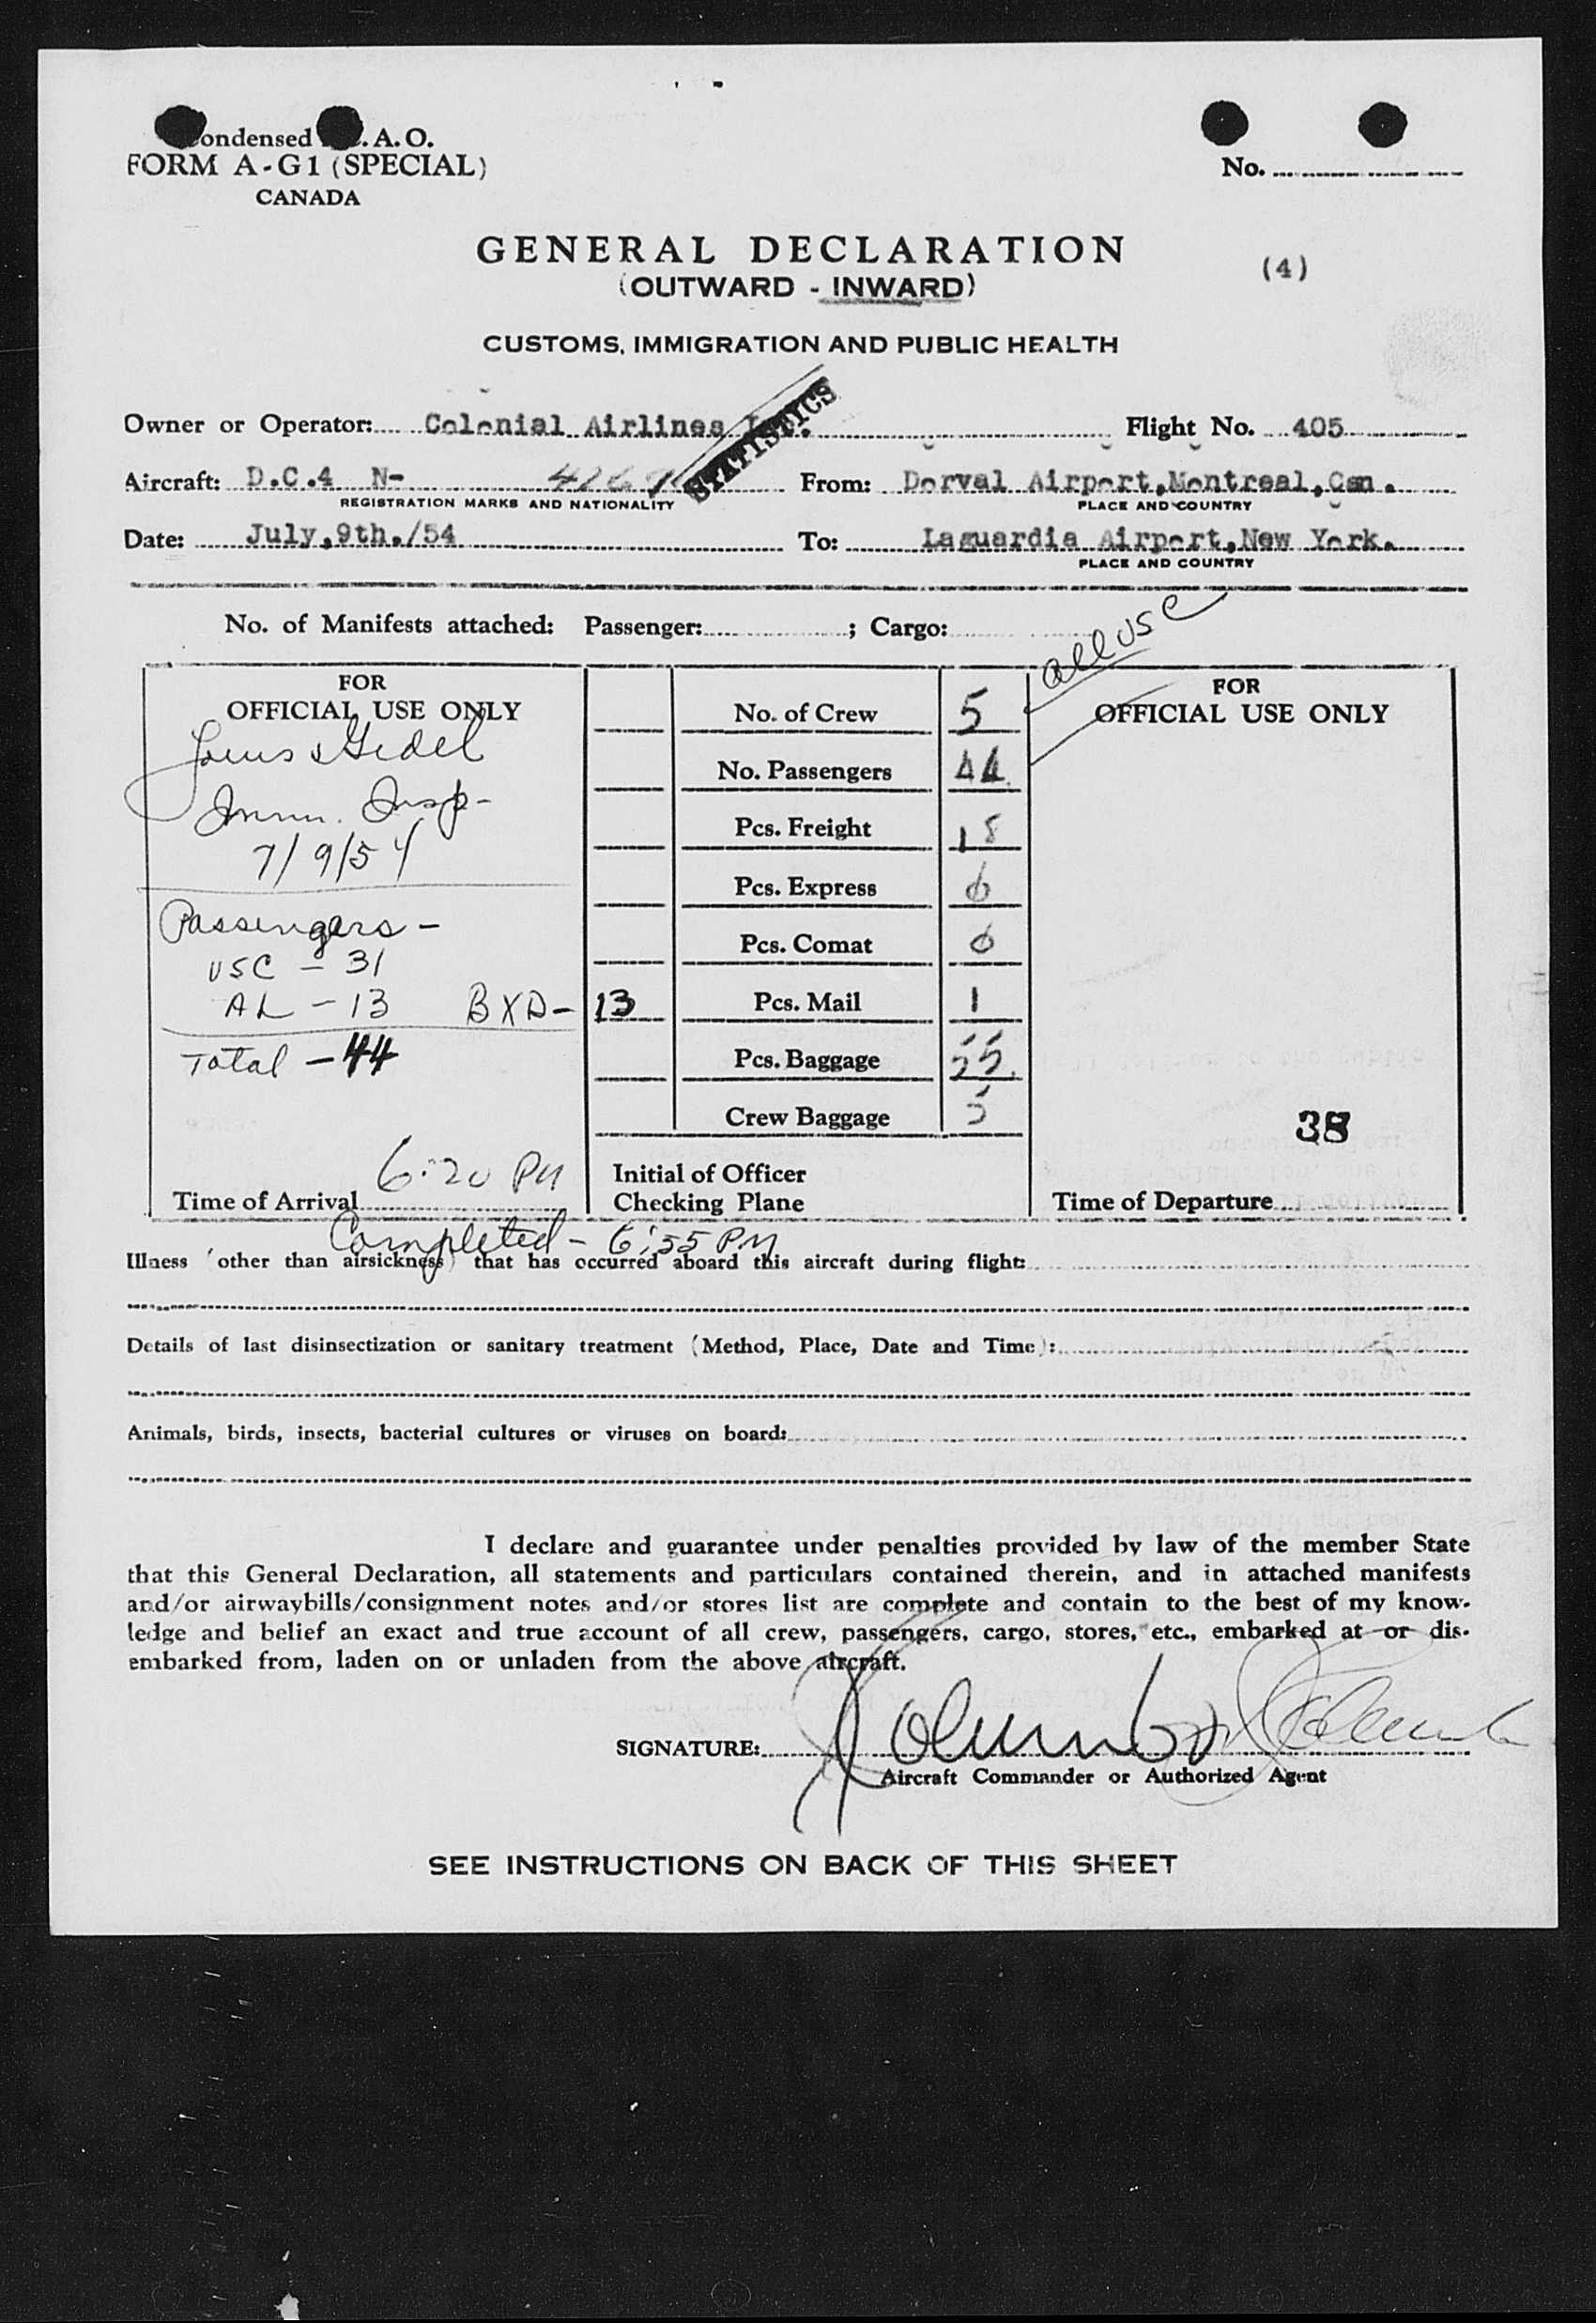 ondensed . A. O.
FORM A-G1 (SPECIAL)
CANADA
No.
GENERAL DECLARATION
(OUTWARD - INWARD)
(4)
CUSTOMS, IMMIGRATION AND PUBLIC HEALTH
STATISTICS
Owner or Operator: Colonial Airlines Flight No. 405
Aircraft: D.C.4 N- From: Dorval Airport, Montreal, Can.
REGISTRATION MARKS AND NATIONALITY PLACE AND COUNTRY
Date: July, 9th./54 To: Laguardia Airport, New York.
PLACE AND COUNTRY
No. of Manifests attached: Passenger: ; Cargo:
all USC
FOR OFFICIAL USE ONLY
Imm. Insp-
7/9/54
Passengers -
USC - 31
AL - 13 BXD - 13
Total - 44
Time of Arrival 6:20 PM
Completed - 6:55 PM
No. of Crew 5
No. Passengers 44
Pcs. Freight 18
Pcs. Express 0
Pcs. Comat 0
Pcs. Mail 1
Pcs. Baggage 55
Crew Baggage 5
Initial of Officer
Checking Plane
FOR
OFFICIAL USE ONLY
38
Time of Departure
Illness (other than airsickness) that has occurred aboard this aircraft during flight:
Details of last disinsectization or sanitary treatment (Method, Place, Date and Time):
Animals, birds, insects, bacterial cultures or viruses on board:
I declare and guarantee under penalties provided by law of the member State
that this General Declaration, all statements and particulars contained therein, and in attached manifests
and/or airwaybills/consignment notes and/or stores list are complete and contain to the best of my know-
ledge and belief an exact and true account of all crew, passengers, cargo, stores, etc., embarked at or dis-
embarked from, laden on or unladen from the above aircraft.
SIGNATURE:
Aircraft Commander or Authorized Agent
SEE INSTRUCTIONS ON BACK OF THIS SHEET